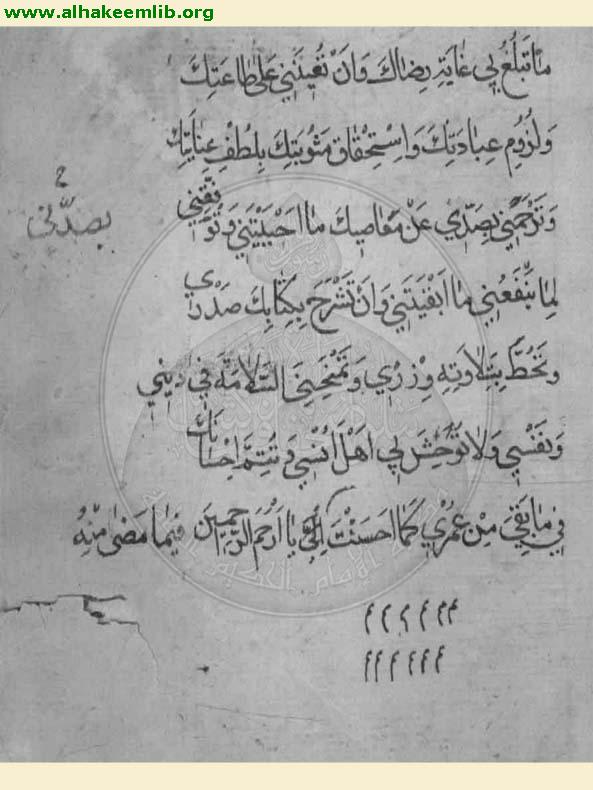 www.alhakeemlib.org
مٰا تَبْلُغُ بِي غٰايَةَ رِضٰاكَ وَاَنْ تُعِينَنِي عَلىٰ طٰاعَتِكَ
وَلُزُومِ عِبٰادَتِكَ وَاسْتِحْقٰاقِ مَثُوبَتِكَ بِلُطْفِ عِنٰايَتِكَ
وَتَرْحَمَنِي بِصَدِّي عَنْ مَعٰاصِيكَ مٰا اَحْيَيْتَنِي وَتُوَفِّقَنِي
بصدّنى
لِمٰا يَنْفَعُنِي مٰا اَبْقَيْتَنِي وَاَنْ تَشْرَحَ بِكِتٰابِكَ صَدْرِي
وَتَحُطَّ بِتِلاٰوَتِهِ وِزْرِي وَتَمْنَحَنِيَ السَّلاٰمَةَ فِي دِينِي
وَنَفْسِي وَلاٰ تُوحِشَ بِي اَهْلَ اُنْسِي وَتُتِمَّ اِحْسٰانَكَ
فِي مٰا بَقِيَ مِنْ عُمْرِي كَمٰا اَحْسَنْتَ اِلَيَّ يٰا اَرْحَمَ الرّٰحِمِينَ فِيمٰا مَضىٰ مِنْهُ